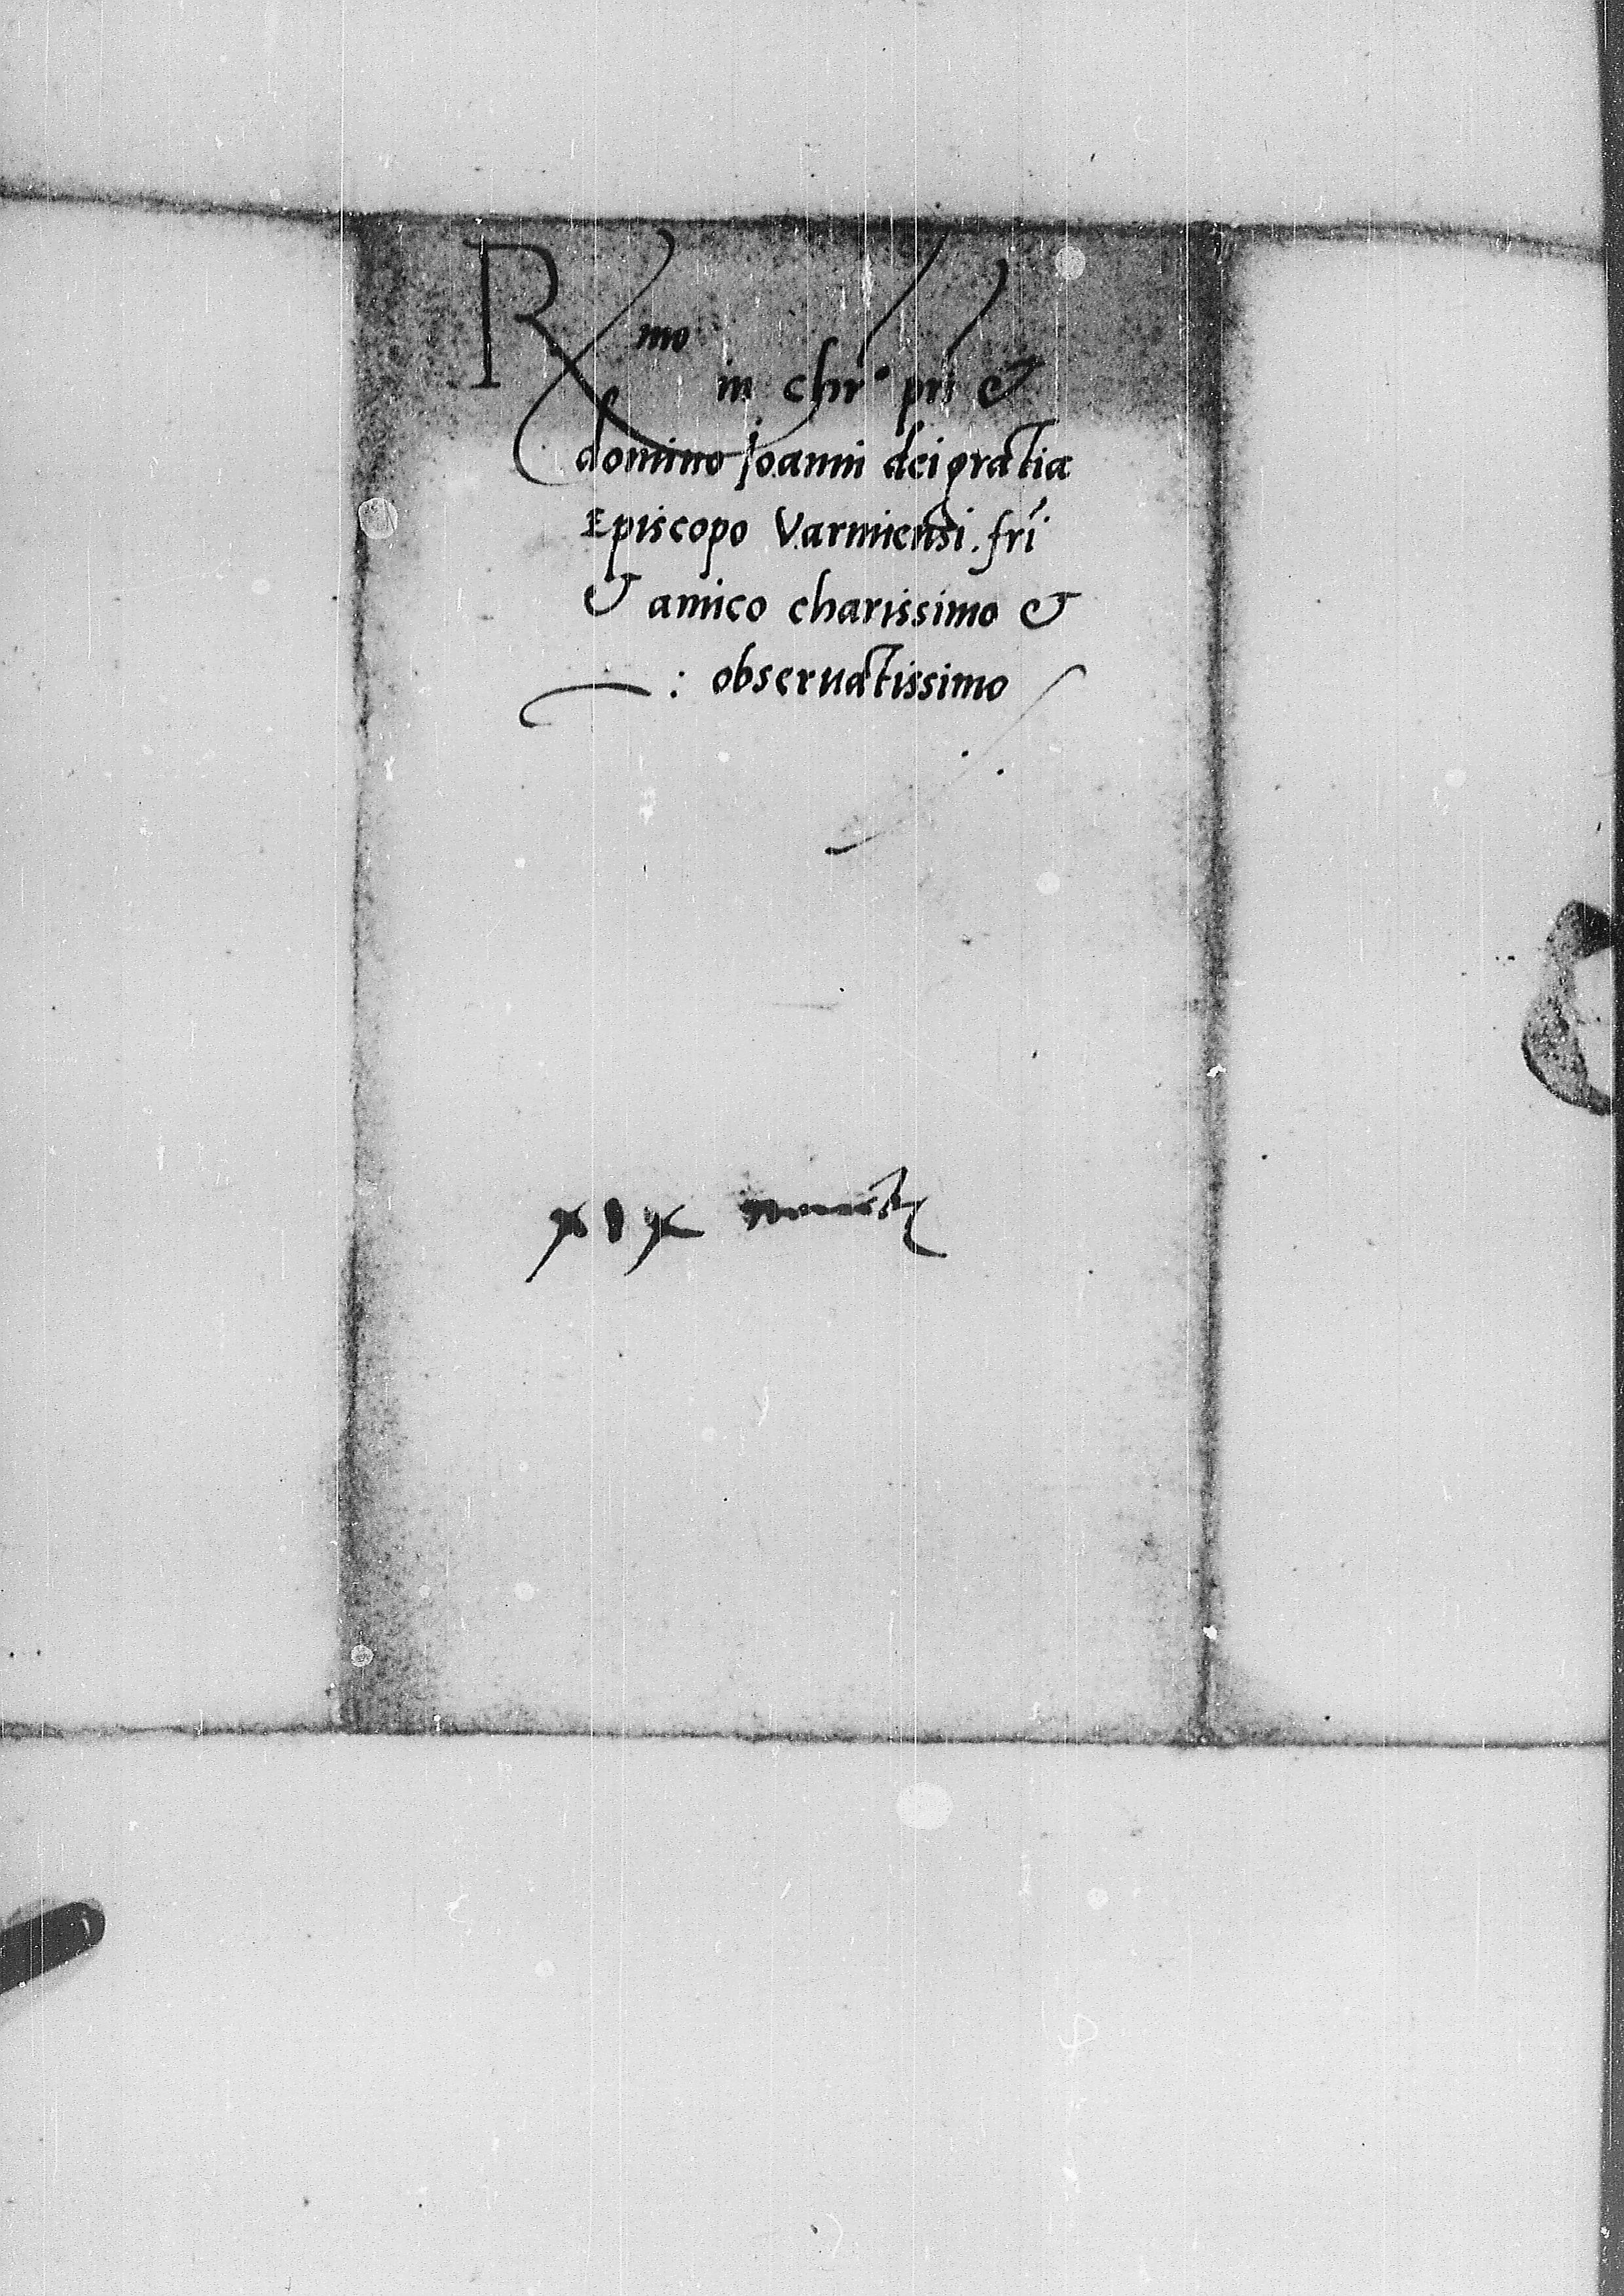 R mo
in chr° pri &
domino Joanni dei gratia
Episcopo Varmiensi. fri
& amico charissimo &
: observatissimo
xix